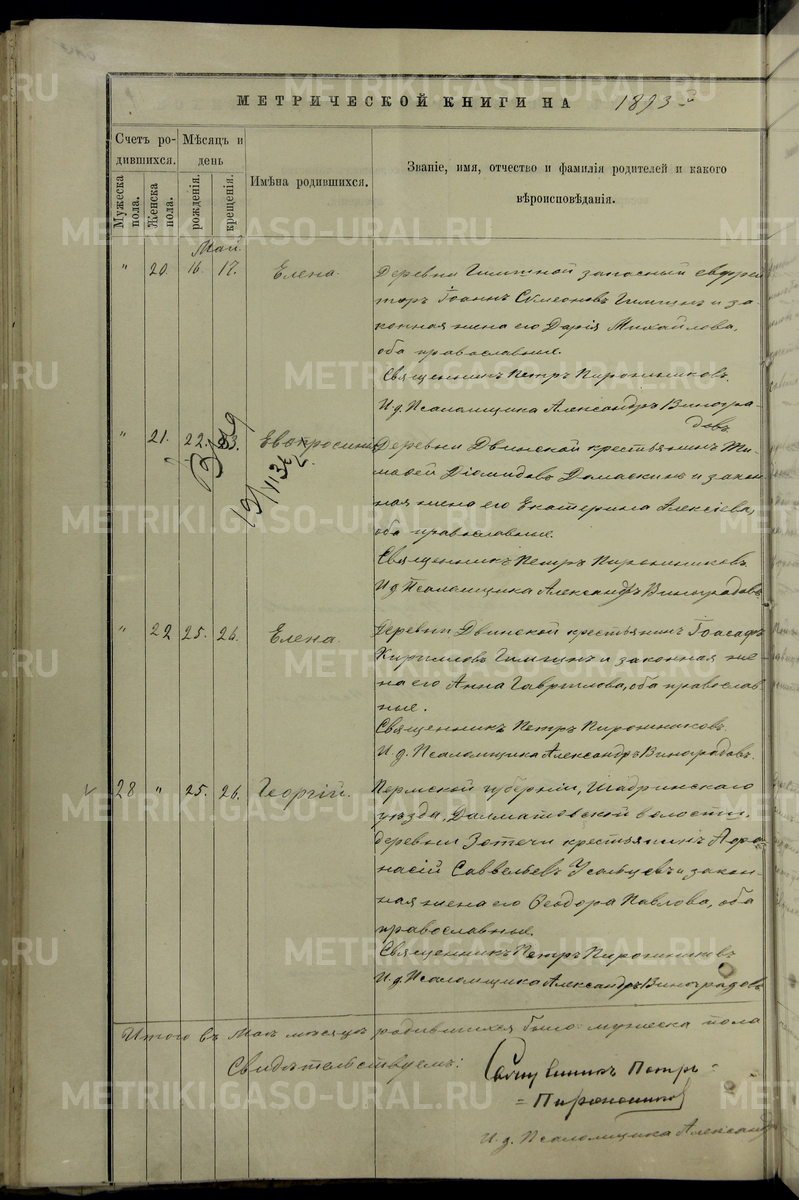 МЕТРИЧЕСКОЙ КНИГИ НА 1893 й
Счетъ ро-
дившихся.
Мѣсяцъ и
день
Имѣна родившихся.
Званіе, имя, отчество и фамилія родителей и какого
вѣроисповѣданія.
Мужеска
пола.
Женска
пола.
рожденія.
крещенія.
Май.
" 20. 16. 17. Елена. Деревни запасный ефрей
торъ Іоаннъ Симеоновъ и за-
конная жена его Дарія Михайлова,
оба православные.
Священникъ Петръ Пирожниковъ.
И. д. Псаломщика Александръ Виногра-
довъ
" 21. 22. 23. Евфросинія Деревни Двинской крестьянинъ Ти-
мофей Діомидовъ Домаскинъ и закон-
ная жена его Екатерина Алексіева,
оба православные.
Священникъ Петръ Пирожниковъ.
И. д. Псаломщика Александръ Виноградовъ
" 22 25. 26. Елена. Деревни Двинской крестьянинъ Іоасафъ
Кирилловъ и законная же-
на его Анна Гаврилова, оба православ-
ные.
Священникъ Петръ Пирожниковъ.
И. д. Псаломщика Александръ Виноградовъ.
28 " 25. 26. Георгій. Пермской губерніи, Шадринскаго
уѣзда, Далматовской волости,
деревни Затечи крестьянинъ Афа-
насій Савельевъ Усальцевъ и закон-
ная жена его Ѳеодора Павлова, оба
православные.
Священникъ Петръ Пирожниковъ
И. д. Псаломщика Александръ Виноградовъ
Итого въ Маѣ мѣсяцѣ родившихся было: мужеска пола
Свидѣтельствуемъ: Священникъ Петръ
Пирожниковъ
И. д. Псаломщика Александръ
METRIKI.GASO-URAL.RU